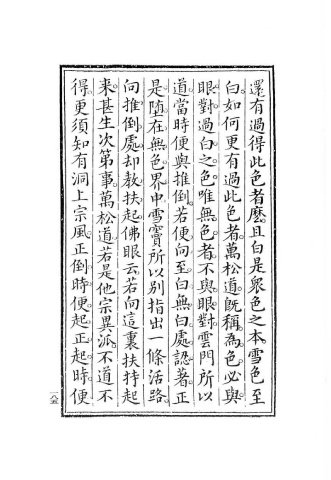 還有過得此色者麼且白是衆色之本雪色至
白如何更有過此色者萬松道旣稱為色必與
眼對過白之色唯無色者不與眼對雲門所以
道當時便與推倒若便向至白無白處認著正
是墮在無色界中雪竇所以別指出一條活路
向推倒處却教扶起佛眼云若向這裏扶持起
來甚生次第事萬松道若是他宗異派不道不
得更須知有洞上宗風正倒時便起正起時便